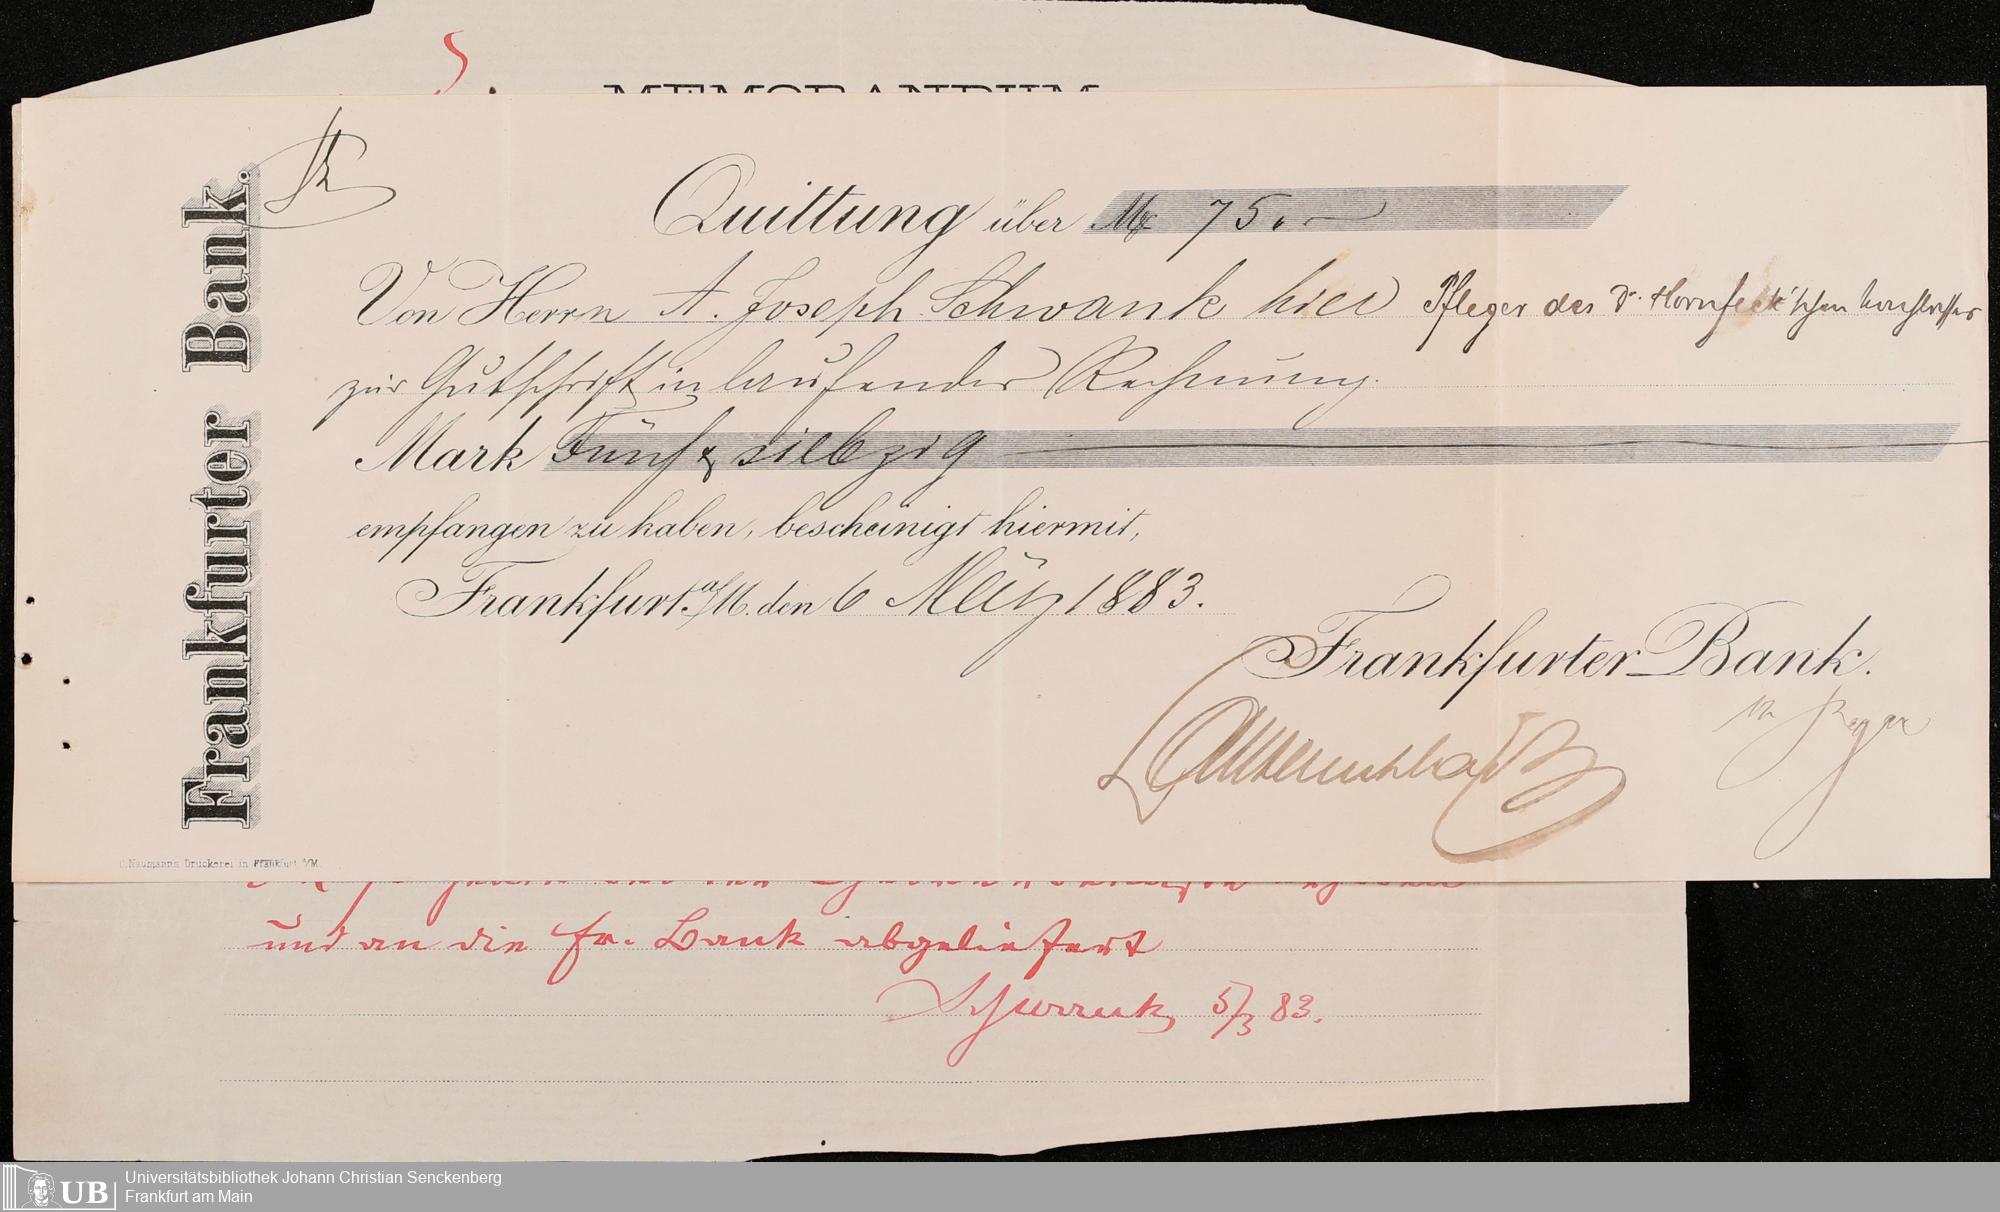 MEMORANDUM
Frankfurter Bank.
Quittung über M 75.—
Von Herrn A. Joseph Schwank hier Pfleger des Dr. Hornfeck'schen Nachlasses
zur Gutschrift in laufender Rechnung.
Mark Fünf & siebzig
empfangen zu haben, bescheinigt hiermit,
Frankfurt a/M. den 6 März 1883.
Frankfurter Bank.
C. Naumann's Druckerei in Frankfurt a/M.
und an die Fr. Bank abgeliefert
Schwank 5/3 83.
UB
Universitätsbibliothek Johann Christian Senckenberg
Frankfurt am Main